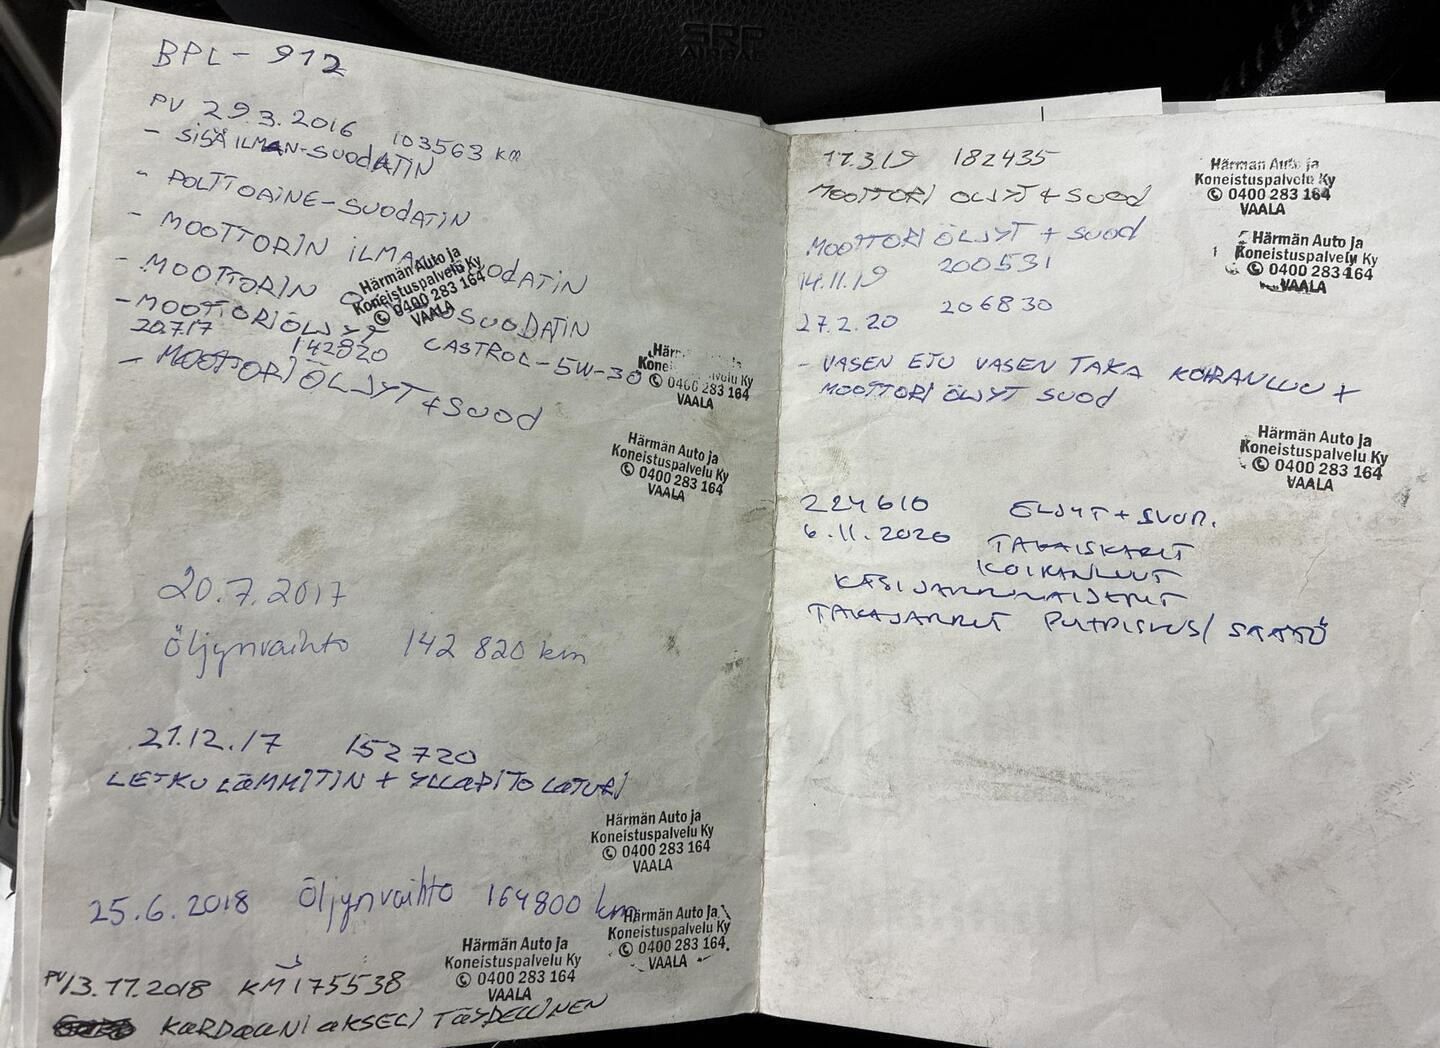 SRS
AIRBAG
BPL-912
PV 29.3.2016 103563 km
- SISÄILMAN-SUODATIN
- POLTTOAINE-SUODATIN
- MOOTTORIN ILMANSUODATIN
- MOOTTORIN SUODATIN
- MOOTTORIÖLJYT CASTROL-5W-30
20.7.17 142820
- MOOTTORIÖLJYT + SUOD
Härmän Auto ja
Koneistuspalvelu Ky
0400 283 164
VAALA
Härmän Auto ja
Koneistuspalvelu Ky
0400 283 164
VAALA
Härmän Auto ja
Koneistuspalvelu Ky
0400 283 164
VAALA
20.7.2017
Öljynvaihto 142 820 km
21.12.17 152720
LETKULÄMMITIN + YLLÄPITOLATURI
Härmän Auto ja
Koneistuspalvelu Ky
0400 283 164
VAALA
25.6.2018 Öljynvaihto 164800 km
Härmän Auto ja
Koneistuspalvelu Ky
0400 283 164
VAALA
PV 13.11.2018 KM 175538
Härmän Auto ja
Koneistuspalvelu Ky
0400 283 164
VAALA
KARDAANIAKSELI TÄYDELLINEN
17.3.19 182435
MOOTTORI ÖLJYT + SUOD
Härmän Auto ja
Koneistuspalvelu Ky
0400 283 164
VAALA
MOOTTORI ÖLJYT + SUOD
14.11.19 200531
Härmän Auto ja
Koneistuspalvelu Ky
0400 283 164
VAALA
27.2.20 206830
- VASEN ETU VASEN TAKA KOIRANLUU +
MOOTTORI ÖLJYT SUOD
Härmän Auto ja
Koneistuspalvelu Ky
0400 283 164
VAALA
224610 ÖLJYT + SUOD.
6.11.2020 TAKAISKARIT
KOIRANLUUT
KÄSIJARRUVAIJERIT
TAKAJARRUT PUHDISTUS/SÄÄTÖ